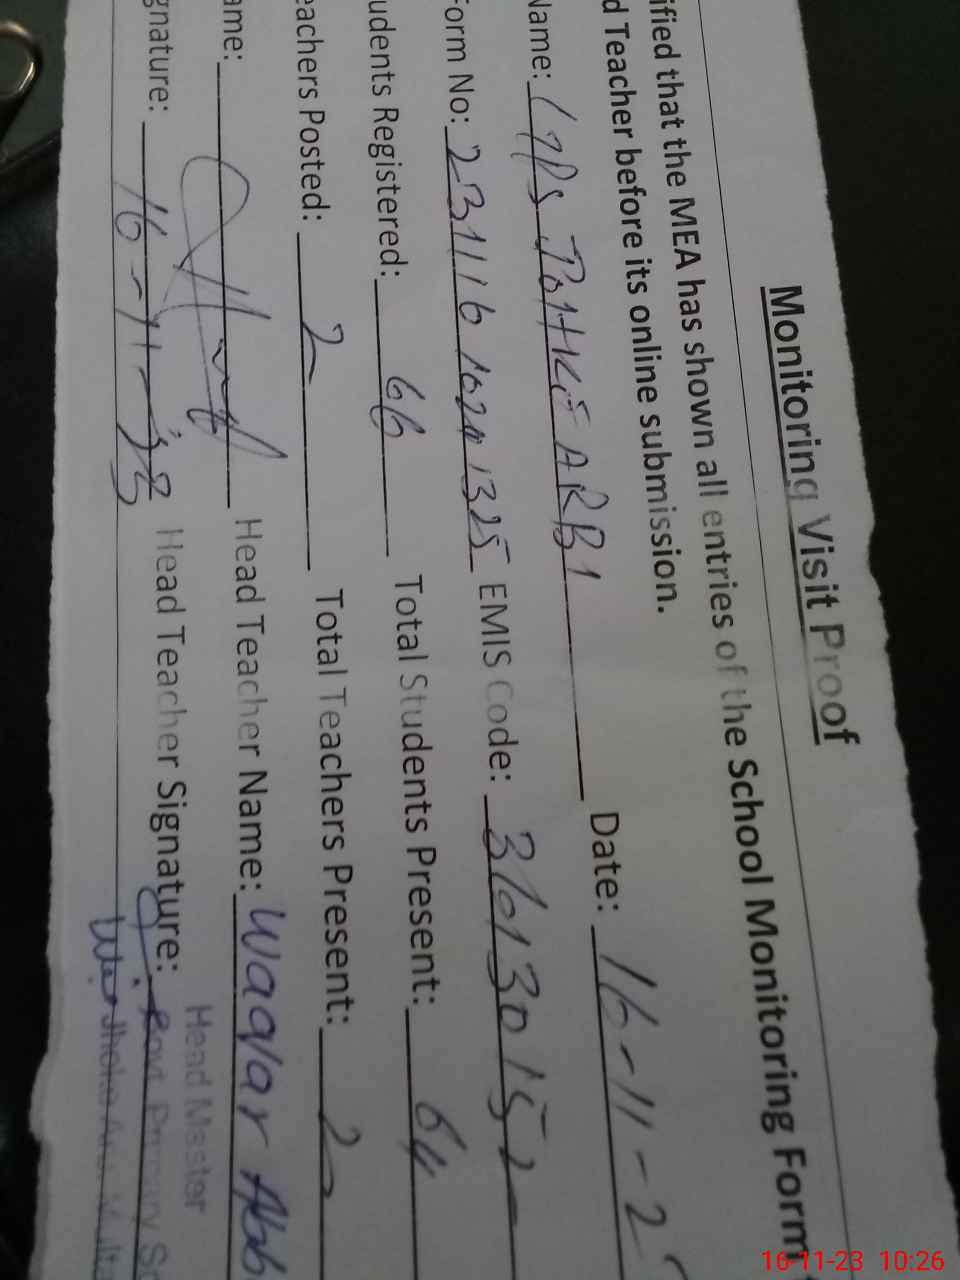 Monitoring Visit Proof
ified that the MEA has shown all entries of the School Monitoring Form
d Teacher before its online submission.
Name: GPS ARBI Date: 16-11-2
Form No: 231116 1024 1325 EMIS Code:
udents Registered: 66 Total Students Present: 64
eachers Posted: 2 Total Teachers Present: 2
ame: Head Teacher Name: Waqar Abb
gnature: 16-11-23 Head Teacher Signature:
Head Master
Govt. Primary Sc
16-11-23 10:26